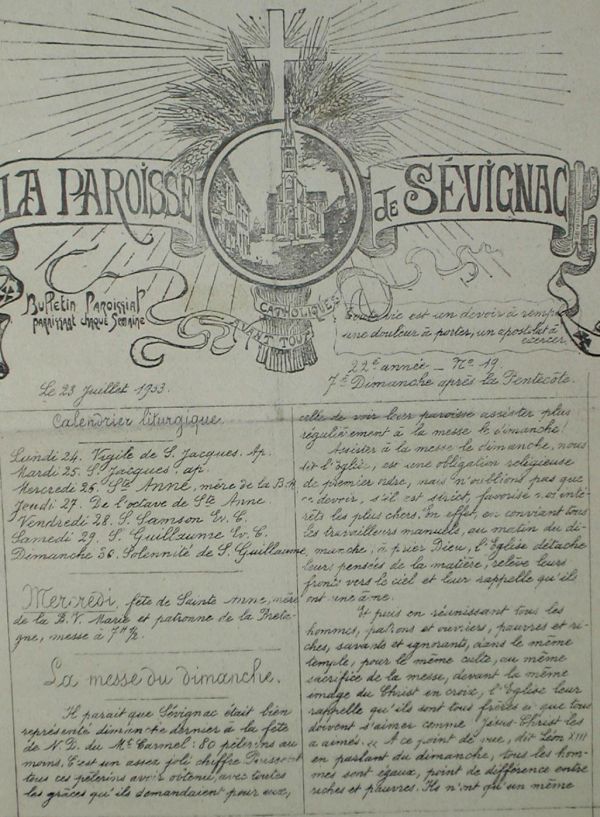 LA PAROISSE de SÉVIGNAC
Bulletin Paroissial
paraissant chaque Semaine
CATHOLIQUES
AVANT TOUT
Toute vie est un devoir à remplir
une douleur à porter, un apostolat à
exercer.
22e année _ No 19.
Le 23 Juillet 1933.
7e Dimanche après la Pentecôte.
Calendrier liturgique.
Lundi 24. Vigile de S. Jacques, Ap.
Mardi 25. S. Jacques, ap.
Mercredi 26. Ste Anne, mère de la B.M
Jeudi 27. De l'octave de Ste Anne
Vendredi 28. S. Samson Ev. C.
Samedi 29. S. Guillaume Ev. C.
Dimanche 30. Solennité de S. Guillaume
Mercredi, fête de Sainte Anne, mère
de la B. V. Marie et patronne de la Breta-
gne, messe à 7H ½.
La messe du dimanche.
Il paraît que Sévignac était bien
représenté dimanche dernier à la fête
de N. D. du Mt Carmel: 80 pèlerins au
moins. C'est un assez joli chiffre. Puissent
tous ces pèlerins avoir obtenu, avec toutes
les grâces qu'ils demandaient pour eux,
celle de voir leur paroisse assister plus
régulièrement à la messe le dimanche!
Assister à la messe le dimanche, nous
dit l'Église, est une obligation religieuse
de premier ordre, mais n'oublions pas que
ce devoir, s'il est strict, favorise nos inté-
rêts les plus chers. En effet, en conviant tous
les travailleurs manuels, au matin du di-
manche, à prier Dieu, l'Église détache
leurs pensées de la matière, relève leurs
fronts vers le ciel et leur rappelle qu'ils
ont une âme.
Et puis en réunissant tous les
hommes, patrons et ouvriers, pauvres et ri-
ches, savants et ignorants, dans le même
temple, pour le même culte, au même
sacrifice de la messe, devant la même
image du Christ en croix, l'Église leur
rappelle qu'ils sont tous frères et que tous
doivent s'aimer comme Jésus-Christ les
a aimés. A ce point de vue, dit Léon XIII
en parlant du dimanche, tous les hom-
mes sont égaux, point de différence entre
riches et pauvres. Ils n'ont qu'un même